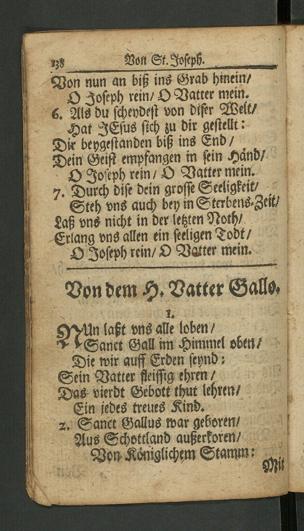 138 Von St. Joseph.
Von nun an biß ins Grab hinein/
O Joseph rein/ O Vatter mein.
6. Als du scheydest von diser Welt/
Hat JEsus sich zu dir gestellt:
Dir beygestanden biß ins End/
Dein Geist empfangen in sein Händ/
O Joseph rein/ O Vatter mein.
7. Durch dise dein grosse Seeligkeit/
Steh vns auch bey in Sterbens-Zeit/
Laß vns nicht in der letzten Noth/
Erlang vns allen ein seeligen Todt/
O Joseph rein/ O Vatter mein.
Von dem H. Vatter Gallo.
1.
NUn laßt vns alle loben/
Sanct Gall im Himmel oben/
Die wir auff Erden seynd:
Sein Vatter fleissig ehren/
Das vierdt Gebott thut lehren/
Ein jedes treues Kind.
2. Sanct Gallus war geboren/
Aus Schottland außerkoren/
Von Königlichem Stamm:
Mit